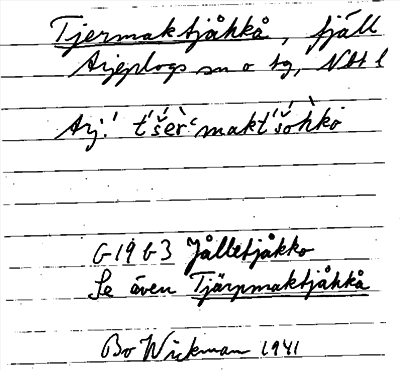 Tjermaktjåkkå, fjäll
Arjeplogs sn o tg, Nbt l
Arj. t́'šèr̀ʿmakt́'šòhkò
G 1963 Jålletjåkko
Se även Tjärpmaktjåkkå
Bo Wickman 1941